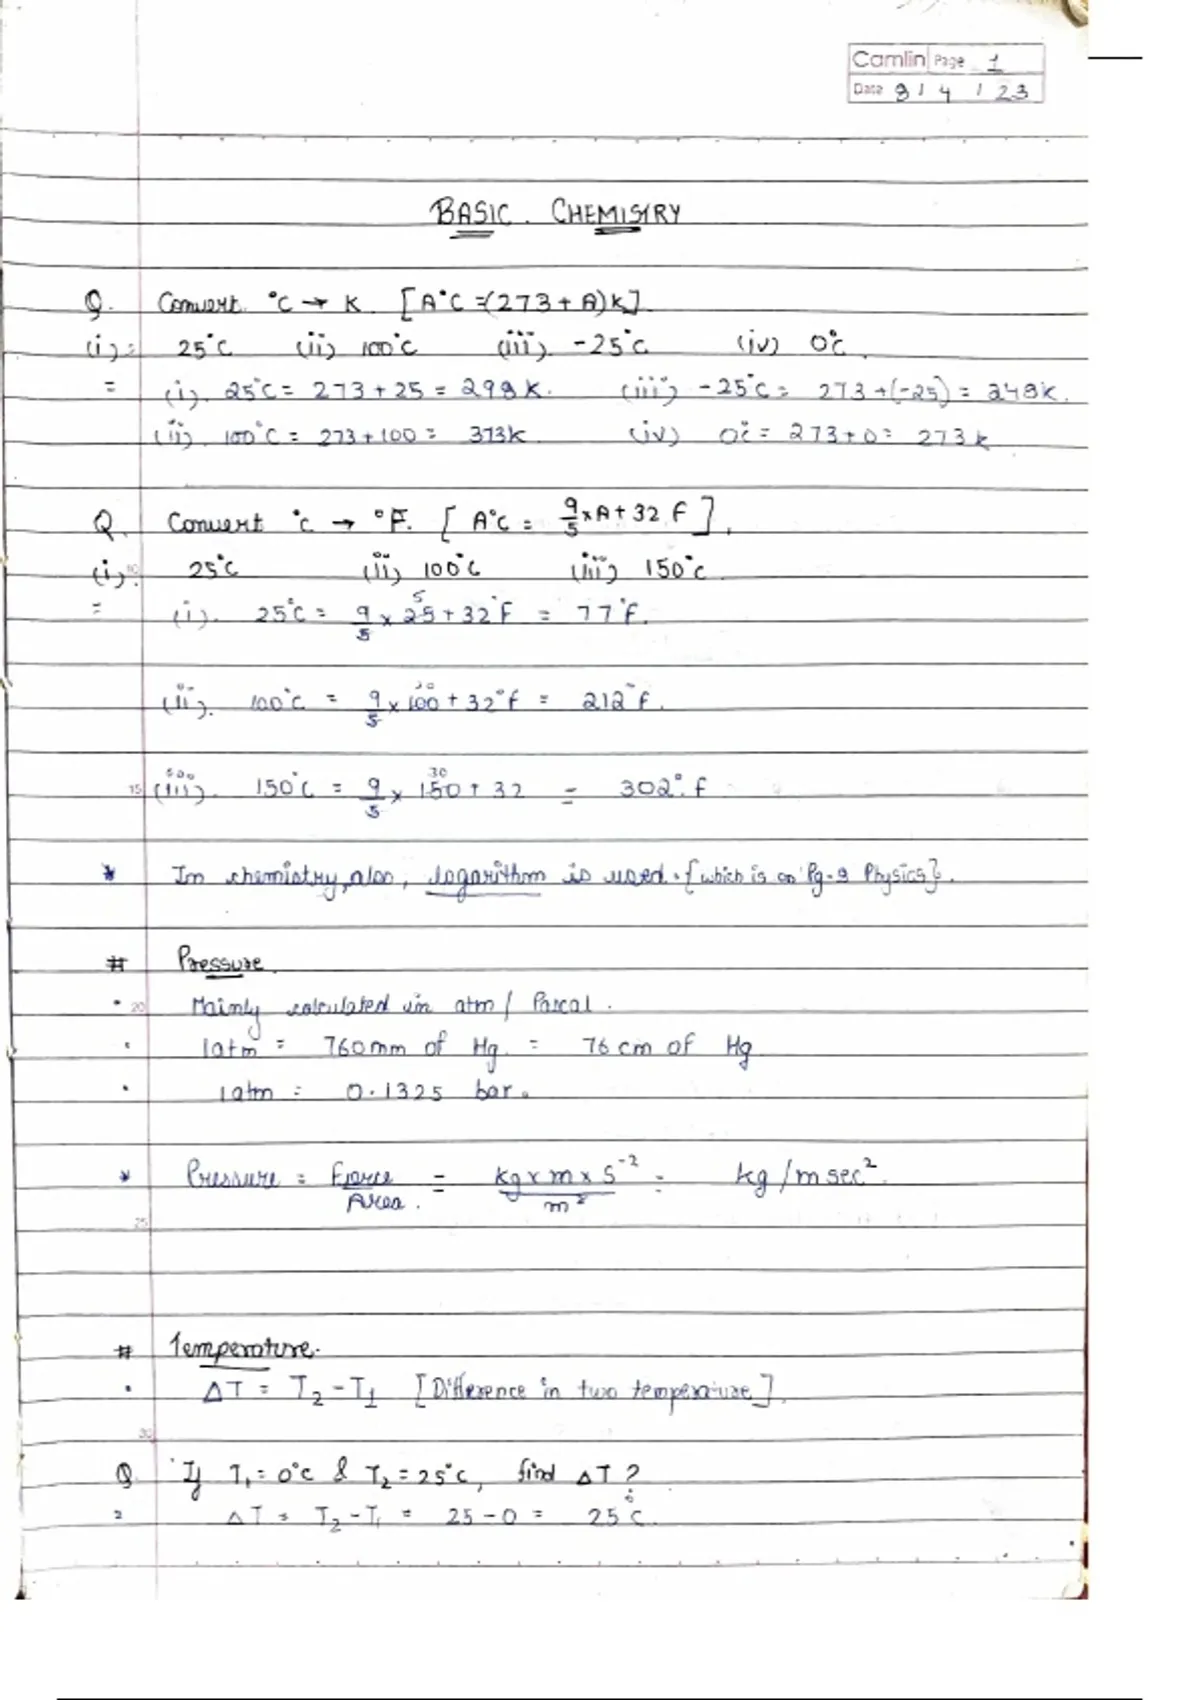 Camlin Page 1
Date 9 / 4 / 23
BASIC . CHEMISTRY
Q. Convert °C → K. [A°C =(273+A)K].
(i) = 25°C (ii) 100°C (iii) -25°C (iv) 0°C.
= (i). 25°C = 273+25 = 298K. (iii) -25°C = 273+(-25) = 248K.
(ii). 100°C = 273+100 = 373K. (iv) 0°C = 273+0 = 273K
Q. Convert °C → °F. [A°C = 9/5 ×A+32 F].
(i) 10 25°C (ii) 100°C (iii) 150°C.
= (i). 25°C = 9/5 × 25 5 + 32°F = 77°F.
(ii). 100°C = 9/5 × 100 20 + 32°f = 212°f.
15 (iii). 150°C = 9/5 × 150 30 + 32 = 302°.f
* In chemistry, also, logarithm is used. {which is on Pg-9 Physics}.
# Pressure.
• 20 Mainly calculated in atm / Pascal.
• 1atm = 760mm of Hg. = 76 cm of Hg
• 1atm = 0.1325 bar.
* Pressure = Force/Area. = kg×m×s⁻²/m² = kg/m sec².
25
# Temperature.
• ΔT = T₂-T₁ [Difference in two temperature].
30
Q. If T₁=0°C & T₂=25°C, find ΔT?
= ΔT = T₂-T₁ = 25-0 = 25°C.